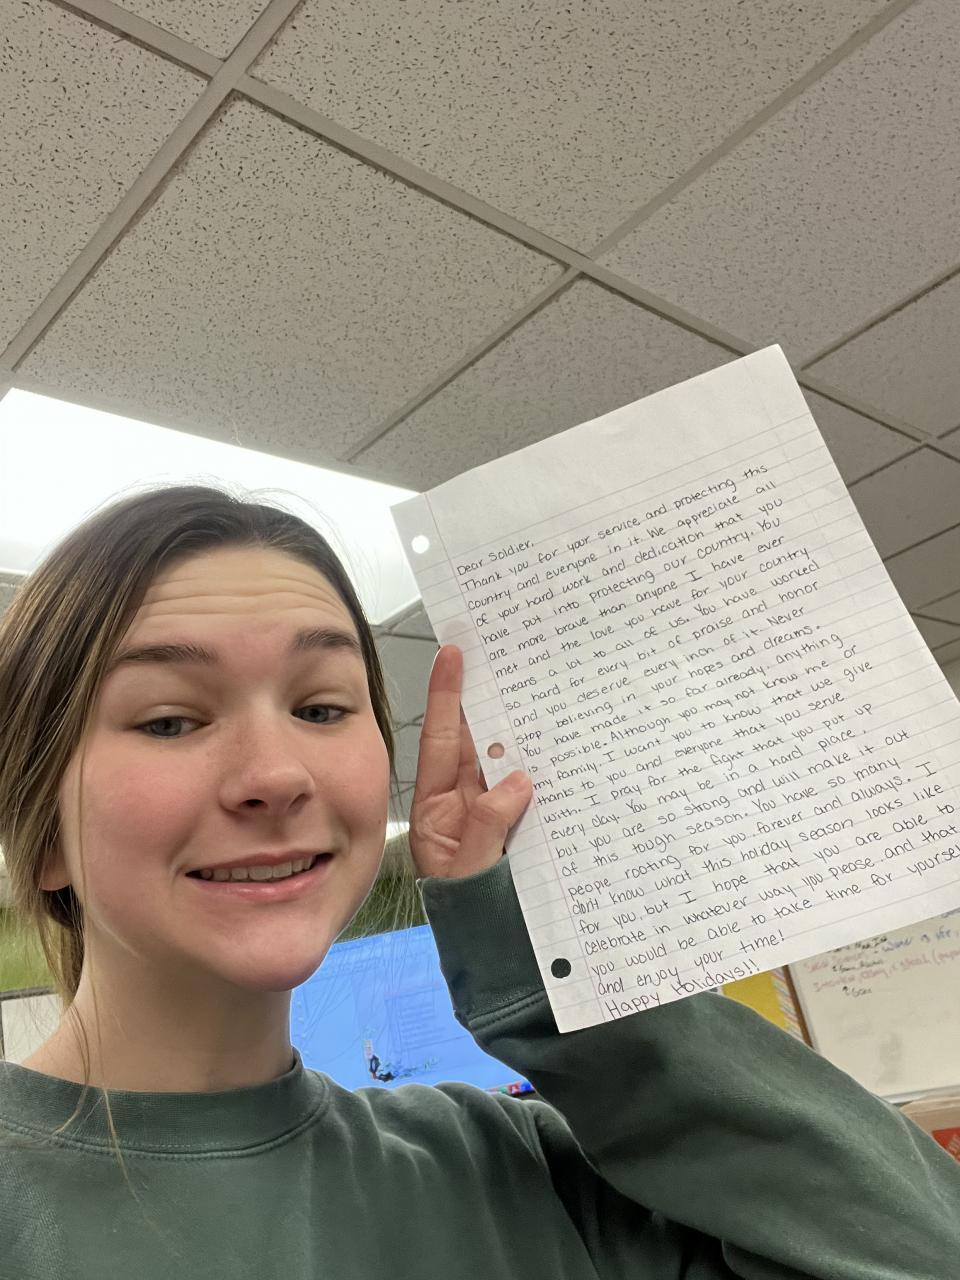 Dear Soldier,
Thank you for your service and protecting this
country and everyone in it. We appreciate all
of your hard work and dedication that you
have put into protecting our country. You
are more brave than anyone I have ever
met and the love you have for your country
means a lot to all of us. You have worked
so hard for every bit of praise and honor
and you deserve every inch of it. Never
stop believing in your hopes and dreams.
You have made it so far already, anything
is possible. Although you may not know me or
my family. I want you to know that we give
thanks to you and everyone that you serve
with. I pray for the fight that you put up
every day. You may be in a hard place,
but you are so strong and will make it out
of this tough season. You have so many
people rooting for you forever and always. I
don't know what this holiday season looks like
for you, but I hope that you are able to
celebrate in whatever way you please and that
you would be able to take time for yourself
and enjoy your time!
Happy Holidays!!